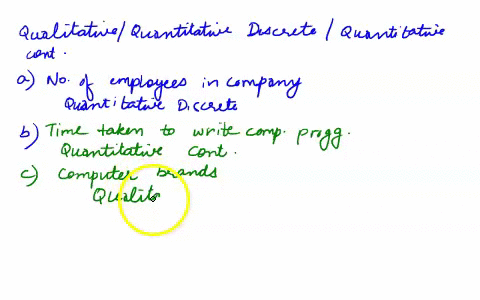 Qualitative/Quantitative Discrete / Quantitative
cont.
a) No. of employees in company
Quantitative Discrete
b) Time taken to write comp. progg.
Quantitative cont.
c) Computer brands
Qualita